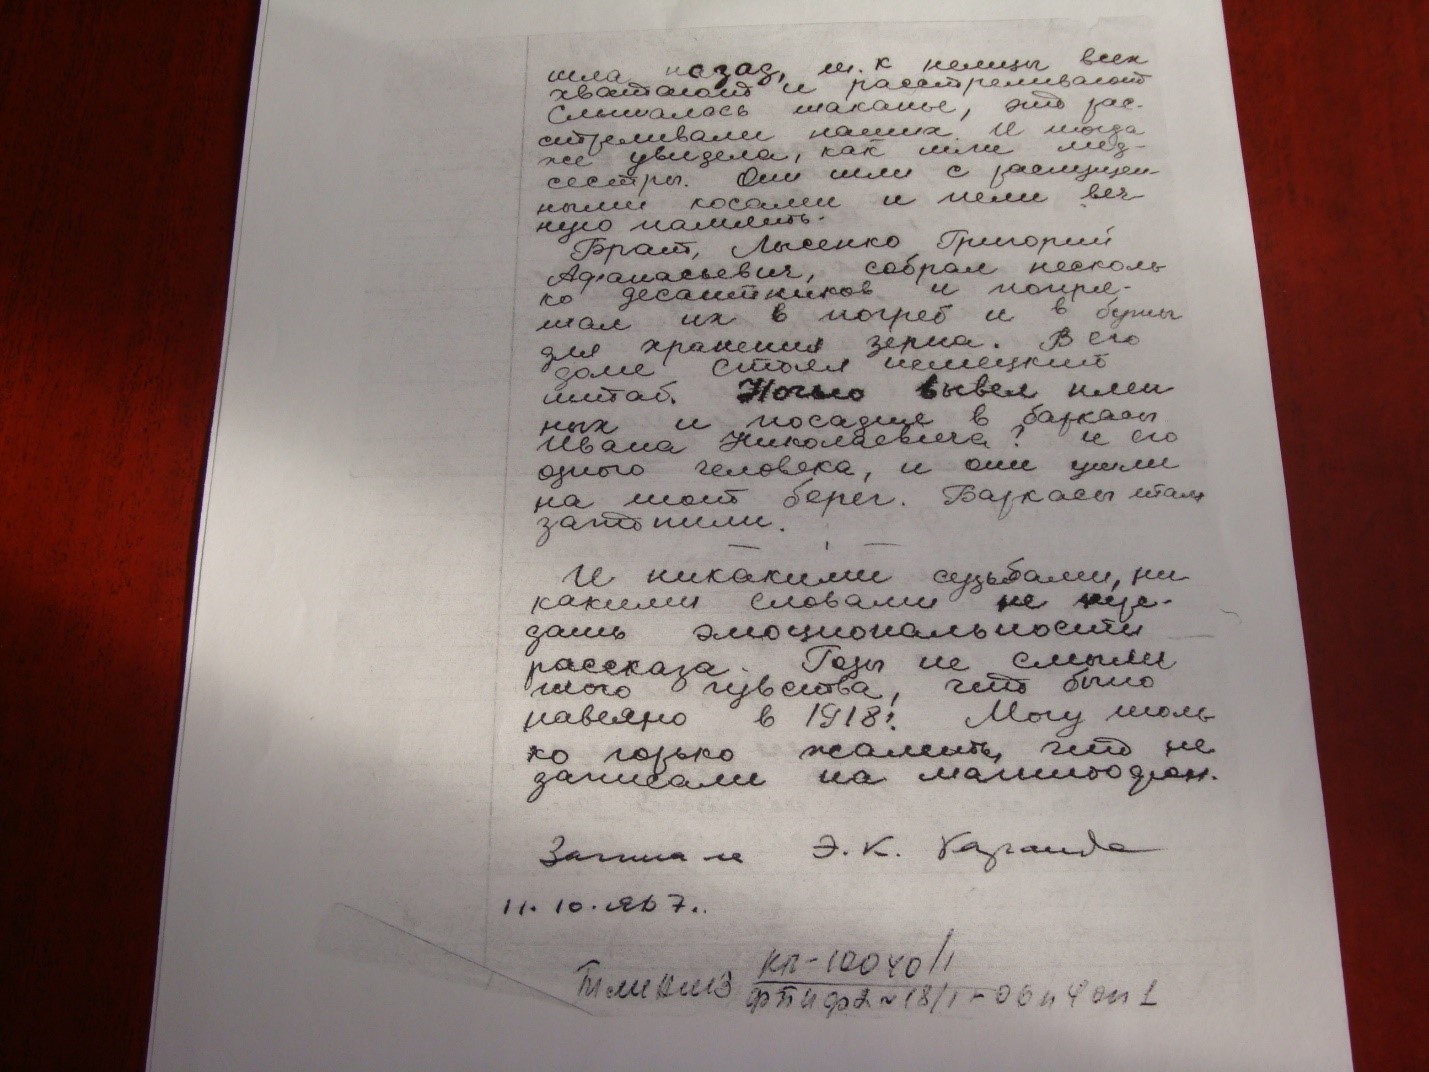 шла назад, т.к немцы всех
хватают и расстреливают
Слышалось таканье, это рас-
стреливали наших. И тогда
же увидела, как шли мед-
сестры. Они шли с распущен-
ными косами и пели веч-
ную память.
Брат, Лысенко Григорий
Афанасьевич, собрал несколь
ко десантников и попря-
тал их в погреб и в бурты
для хранения зерна. В его
доме стоял немецкий
штаб. Ночью вывел плен
ных и посадил в баркасы
Ивана Николаевича? и его
одного человека, и они ушли
на тот берег. Баркасы там
затопили.
И никакими судьбами, ни
какими словами не пере-
дашь эмоциональности
рассказа. Годы не смыли
того чувства, что было
навеяно в 1918г. Могу толь
ко горько жалеть, что не
записали на магнитофон.
Записала Э.К.
11.10.1967.
КП-10040/1